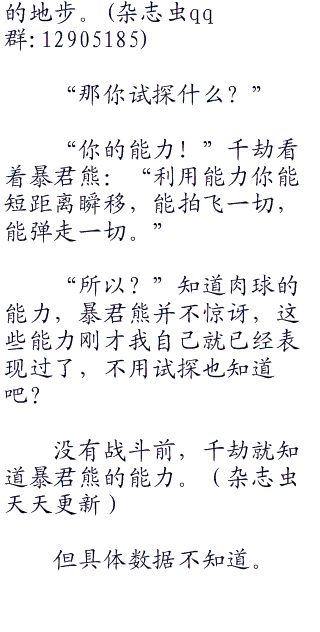 的地步。(杂志虫qq
群:12905185)
“那你试探什么？”
“你的能力！”千劫看
着暴君熊：“利用能力你能
短距离瞬移，能拍飞一切，
能弹走一切。”
“所以？”知道肉球的
能力，暴君熊并不惊讶，这
些能力刚才我自己就已经表
现过了，不用试探也知道
吧？
没有战斗前，千劫就知
道暴君熊的能力。（杂志虫
天天更新）
但具体数据不知道。